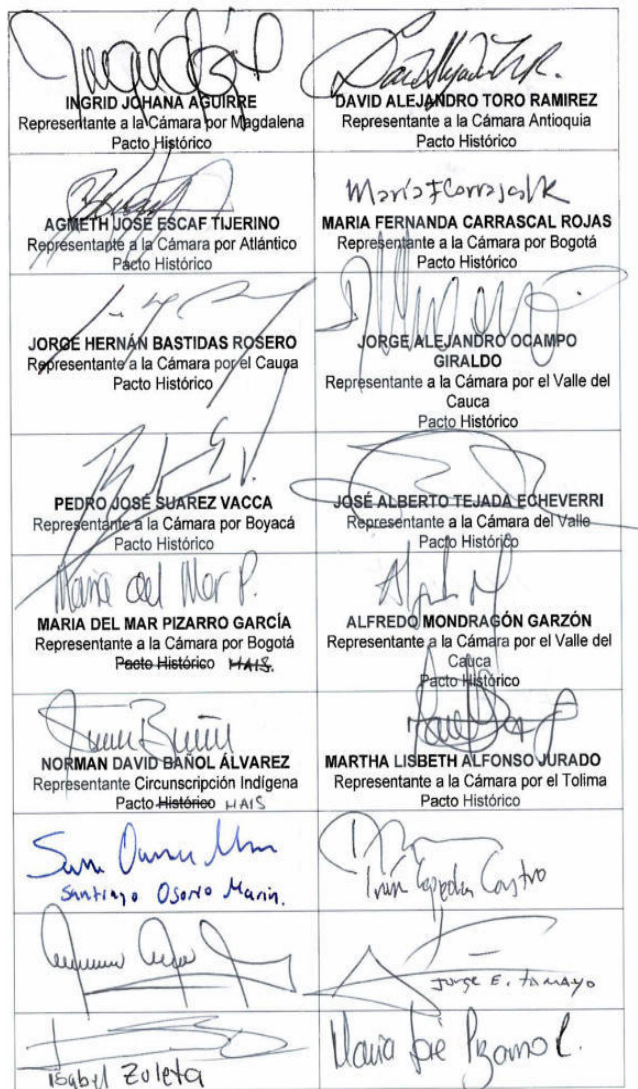 INGRID JOHANA AGUIRRE
Representante a la Cámara por Magdalena
Pacto Histórico
DAVID ALEJANDRO TORO RAMIREZ
Representante a la Cámara Antioquia
Pacto Histórico
AGMETH JOSÉ ESCAF TIJERINO
Representante a la Cámara por Atlántico
Pacto Histórico
María F Carrascal R
MARIA FERNANDA CARRASCAL ROJAS
Representante a la Cámara por Bogotá
Pacto Histórico
JORGE HERNÁN BASTIDAS ROSERO
Representante a la Cámara por el Cauca
Pacto Histórico
JORGE ALEJANDRO OCAMPO
GIRALDO
Representante a la Cámara por el Valle del
Cauca
Pacto Histórico
PEDRO JOSÉ SUAREZ VACCA
Representante a la Cámara por Boyacá
Pacto Histórico
JOSÉ ALBERTO TEJADA ECHEVERRI
Representante a la Cámara del Valle
Pacto Histórico
Maria del Mar P.
MARIA DEL MAR PIZARRO GARCÍA
Representante a la Cámara por Bogotá
Pacto Histórico MAIS.
ALFREDO MONDRAGÓN GARZÓN
Representante a la Cámara por el Valle del
Cauca
Pacto Histórico
NORMAN DAVID BAÑOL ÁLVAREZ
Representante Circunscripción Indígena
Pacto Histórico MAIS
MARTHA LISBETH ALFONSO JURADO
Representante a la Cámara por el Tolima
Pacto Histórico
Santiago Osorio Marin.
Iván Cepeda Castro
Jorge E. Tamayo
Isabel Zuleta
María José Pizarro R.